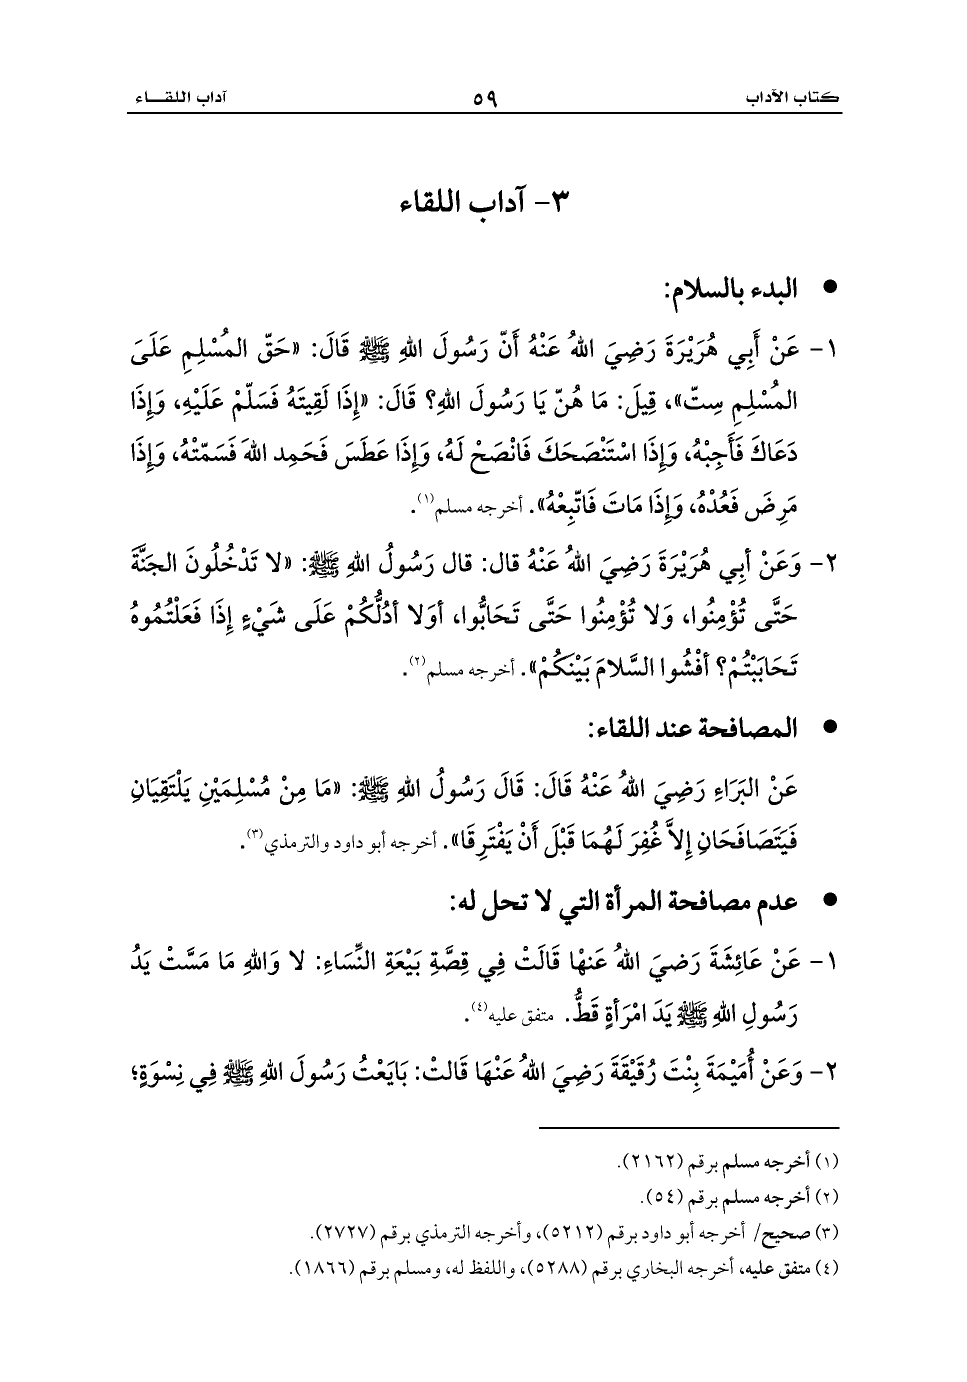 كتاب الآداب ٥٩ آداب اللقـــاء
٣- آداب اللقاء
● البدء بالسلام:
١- عَنْ أَبِي هُرَيْرَةَ رَضِيَ اللهُ عَنْهُ أَنّ رَسُولَ اللهِ ﷺ قَالَ: «حَقّ المُسْلِمِ عَلَىَ
المُسْلِمِ سِتّ»، قِيلَ: مَا هُنّ يَا رَسُولَ اللهِ؟ قَالَ: «إِذَا لَقِيتَهُ فَسَلّمْ عَلَيْهِ، وَإِذَا
دَعَاكَ فَأَجِبْهُ، وَإِذَا اسْتَنْصَحَكَ فَانْصَحْ لَهُ، وَإِذَا عَطَسَ فَحَمِد اللهَ فَسَمّتْهُ، وَإِذَا
مَرِضَ فَعُدْهُ، وَإِذَا مَاتَ فَاتّبِعْهُ». أخرجه مسلم(١).
٢- وَعَنْ أبِي هُرَيْرَةَ رَضِيَ اللهُ عَنْهُ قال: قال رَسُولُ اللهِ ﷺ: «لا تَدْخُلُونَ الجَنَّةَ
حَتَّى تُؤْمِنُوا، وَلا تُؤْمِنُوا حَتَّى تَحَابُّوا، أوَلا أدُلُّكُمْ عَلَى شَيْءٍ إِذَا فَعَلْتُمُوهُ
تَحَابَبْتُمْ؟ أفْشُوا السَّلامَ بَيْنَكُمْ». أخرجه مسلم(٢).
● المصافحة عند اللقاء:
عَنْ البَرَاءِ رَضِيَ اللهُ عَنْهُ قَالَ: قَالَ رَسُولُ اللهِ ﷺ: «مَا مِنْ مُسْلِمَيْنِ يَلْتَقِيَانِ
فَيَتَصَافَحَانِ إِلاَّ غُفِرَ لَهُمَا قَبْلَ أَنْ يَفْتَرِقَا». أخرجه أبو داود والترمذي(٣).
● عدم مصافحة المرأة التي لا تحل له:
١- عَنْ عَائِشَةَ رَضيَ اللهُ عَنهْا قَالَتْ فِي قِصَّةِ بَيْعَةِ النِّسَاءِ: لا وَاللهِ مَا مَسَّتْ يَدُ
رَسُولِ اللهِ ﷺ يَدَ امْرَأةٍ قَطُّ. متفق عليه(٤).
٢- وَعَنْ أُمَيْمَةَ بِنْتَ رُقَيْقَةَ رَضِيَ اللهُ عَنْهَا قَالتْ: بَايَعْتُ رَسُولَ اللهِ ﷺ فِي نِسْوَةٍ؛
(١) أخرجه مسلم برقم (٢١٦٢).
(٢) أخرجه مسلم برقم (٥٤).
(٣) صحيح/ أخرجه أبو داود برقم (٥٢١٢)، وأخرجه الترمذي برقم (٢٧٢٧).
(٤) متفق عليه، أخرجه البخاري برقم (٥٢٨٨)، واللفظ له، ومسلم برقم (١٨٦٦).